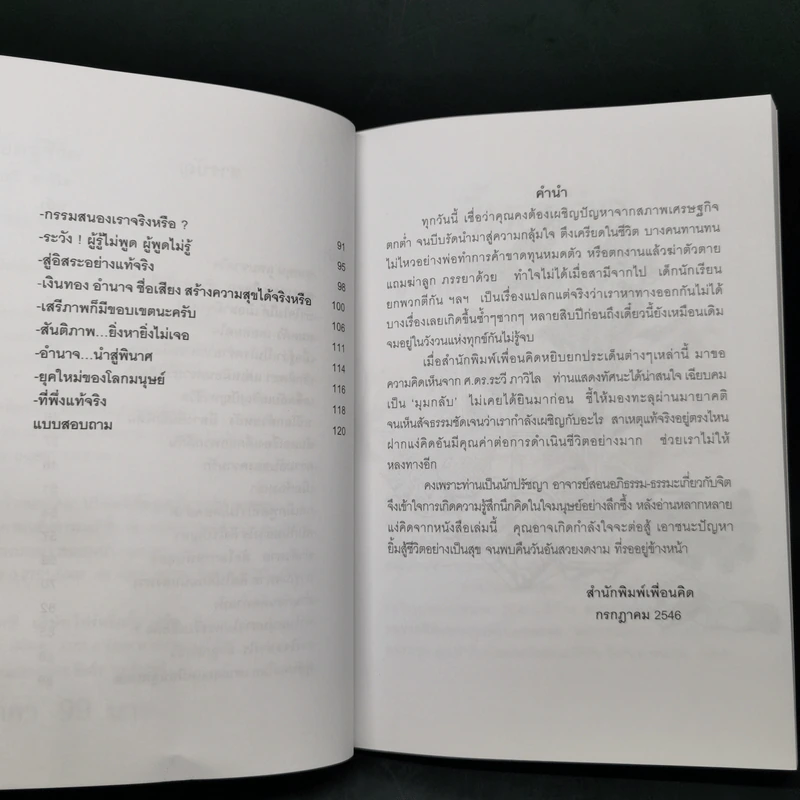 -กรรมสนองเราจริงหรือ ? 91
-ระวัง ! ผู้รู้ไม่พูด ผู้พูดไม่รู้ 95
-สู่อิสระอย่างแท้จริง 98
-เงินทอง อำนาจ ชื่อเสียง สร้างความสุขได้จริงหรือ 100
-เสรีภาพก็มีขอบเขตนะครับ 106
-สันติภาพ...ยิ่งหายิ่งไม่เจอ 111
-อำนาจ...นำสู่พินาศ 114
-ยุคใหม่ของโลกมนุษย์ 116
-ที่พึ่งแท้จริง 118
แบบสอบถาม 120
คำนำ
ทุกวันนี้ เชื่อว่าคุณคงต้องเผชิญปัญหาจากสภาพเศรษฐกิจ
ตกต่ำ จนบีบรัดนำมาสู่ความกลุ้มใจ ตึงเครียดในชีวิต บางคนทานทน
ไม่ไหวอย่างพ่อทำการค้าขาดทุนหมดตัว หรือตกงานแล้วฆ่าตัวตาย
แถมฆ่าลูก ภรรยาด้วย ทำใจไม่ได้เมื่อสามีจากไป เด็กนักเรียน
ยกพวกตีกัน ฯลฯ เป็นเรื่องแปลกแต่จริงว่าเราหาทางออกกันไม่ได้
บางเรื่องเลยเกิดขึ้นซ้ำๆซากๆ หลายสิบปีก่อนถึงเดี๋ยวนี้ยังเหมือนเดิม
จมอยู่ในวังวนแห่งทุกข์กันไม่รู้จบ
เมื่อสำนักพิมพ์เพื่อนคิดหยิบยกประเด็นต่างๆเหล่านี้ มาขอ
ความคิดเห็นจาก ศ.ดร.ระวี ภาวิไล ท่านแสดงทัศนะได้น่าสนใจ เฉียบคม
เป็น 'มุมกลับ' ไม่เคยได้ยินมาก่อน ชี้ให้มองทะลุผ่านมายาคติ
จนเห็นสัจธรรมชัดเจนว่าเรากำลังเผชิญกับอะไร สาเหตุแท้จริงอยู่ตรงไหน
ฝากแง่คิดอันมีคุณค่าต่อการดำเนินชีวิตอย่างมาก ช่วยเราไม่ให้
หลงทางอีก
คงเพราะท่านเป็นนักปรัชญา อาจารย์สอนอภิธรรม-ธรรมะเกี่ยวกับจิต
จึงเข้าใจการเกิดความรู้สึกนึกคิดในใจมนุษย์อย่างลึกซึ้ง หลังอ่านหลากหลาย
แง่คิดจากหนังสือเล่มนี้ คุณอาจเกิดกำลังใจจะต่อสู้ เอาชนะปัญหา
ยิ้มสู้ชีวิตอย่างเป็นสุข จนพบคืนวันอันสวยงดงาม ที่รออยู่ข้างหน้า
สำนักพิมพ์เพื่อนคิด
กรกฎาคม 2546